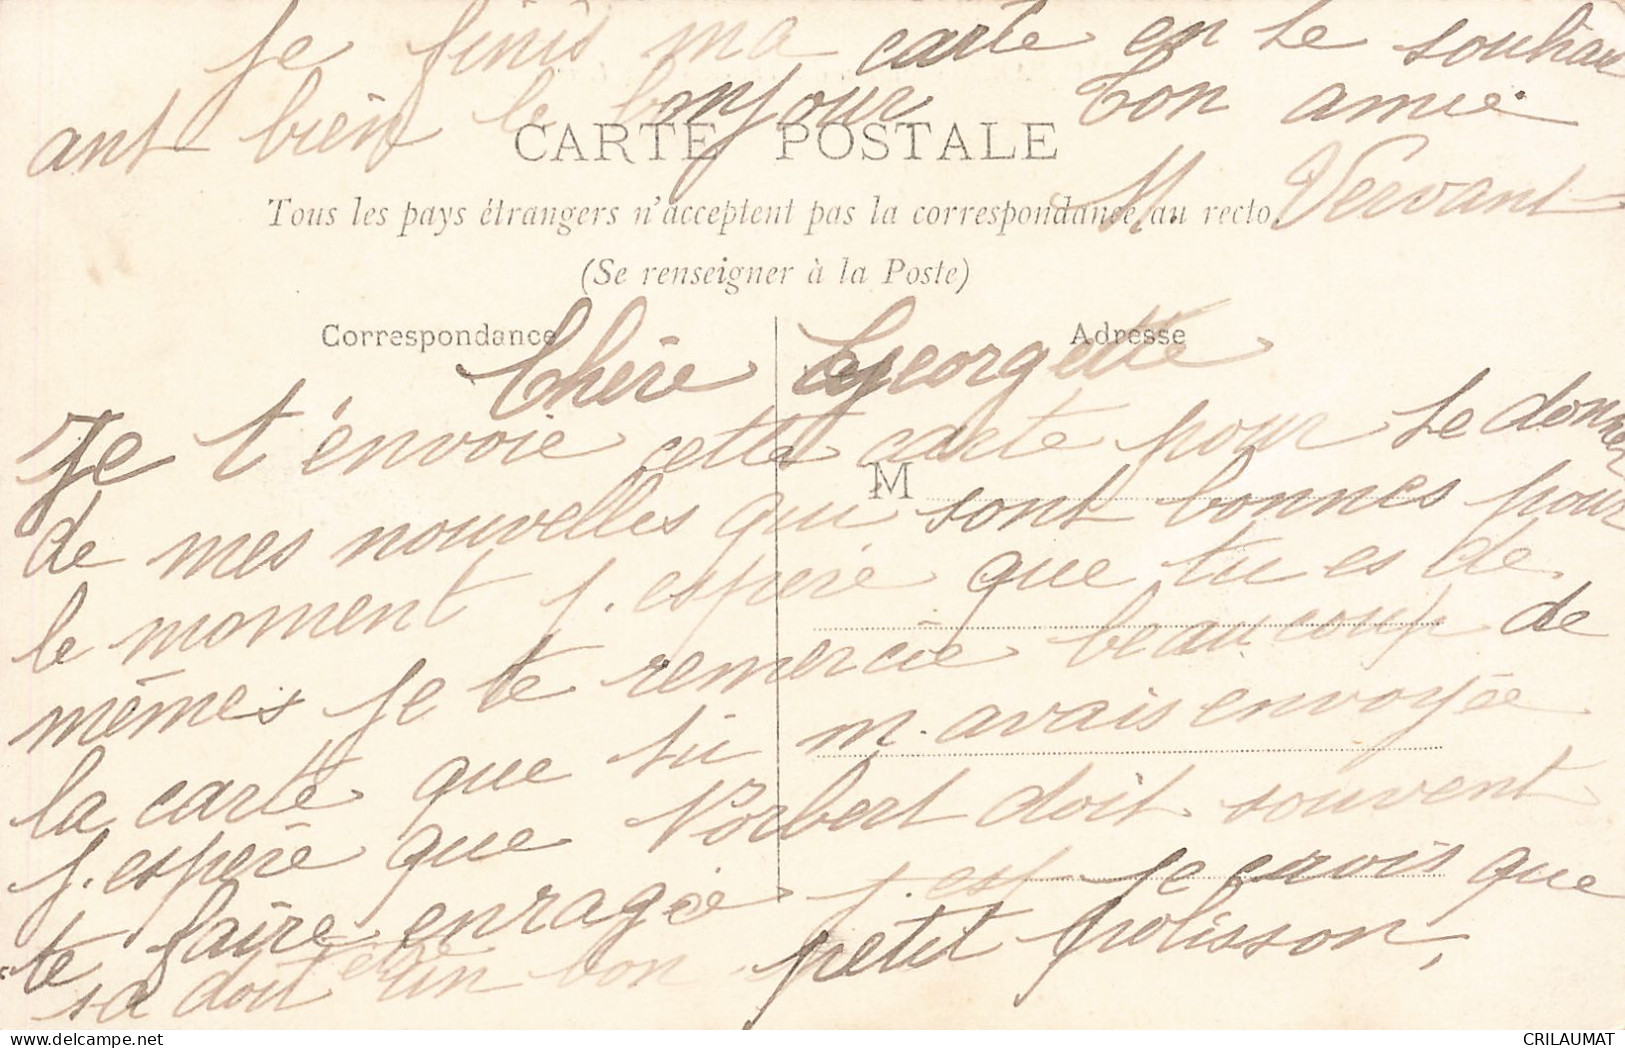 Je finis ma carte en te souhai
ant bien le bonjour Ton amie
CARTE POSTALE
M Vervant
Tous les pays étrangers n'acceptent pas la correspondance au recto.
(Se renseigner à la Poste)
Correspondance
Adresse
Chère Georgette
Je t'envoie cette carte pour te donner
M
de mes nouvelles qui sont bonnes pour
le moment j.espère que tu es de
mêmes je te remercie beaucoup de
la carte que tu m.avais envoyée
j.espère que Norbert doit souvent
te faire enragée j. je crois que
sa doit etre un bon petit polisson,
delcampe.net
CRILAUMAT